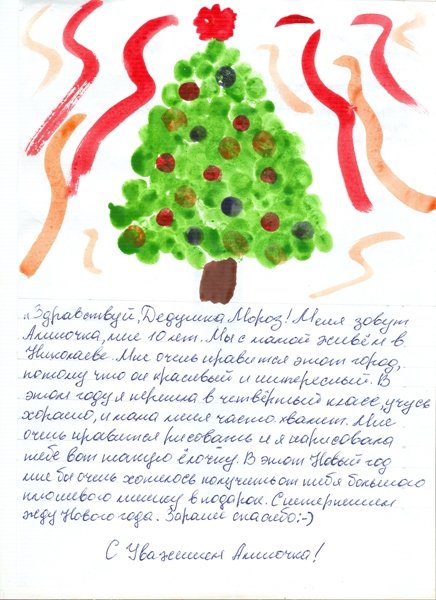 „Здравствуй, Дедушка Мороз! Меня зовут
Алиночка, мне 10 лет. Мы с мамой живём в
Николаеве. Мне очень нравится этот город,
потому что он красивый и интересный. В
этом году я перешла в четвёртый класс, учусь
хорошо, и мама меня часто хвалит. Мне
очень нравится рисовать и я нарисовала
тебе вот такую ёлочку. В этот Новый год
мне бы очень хотелось получить от тебя большого
плюшевого мишку в подарок. С нетерпением
жду Нового года. Зараней спасибо:-)
С Уважением Алиночка!